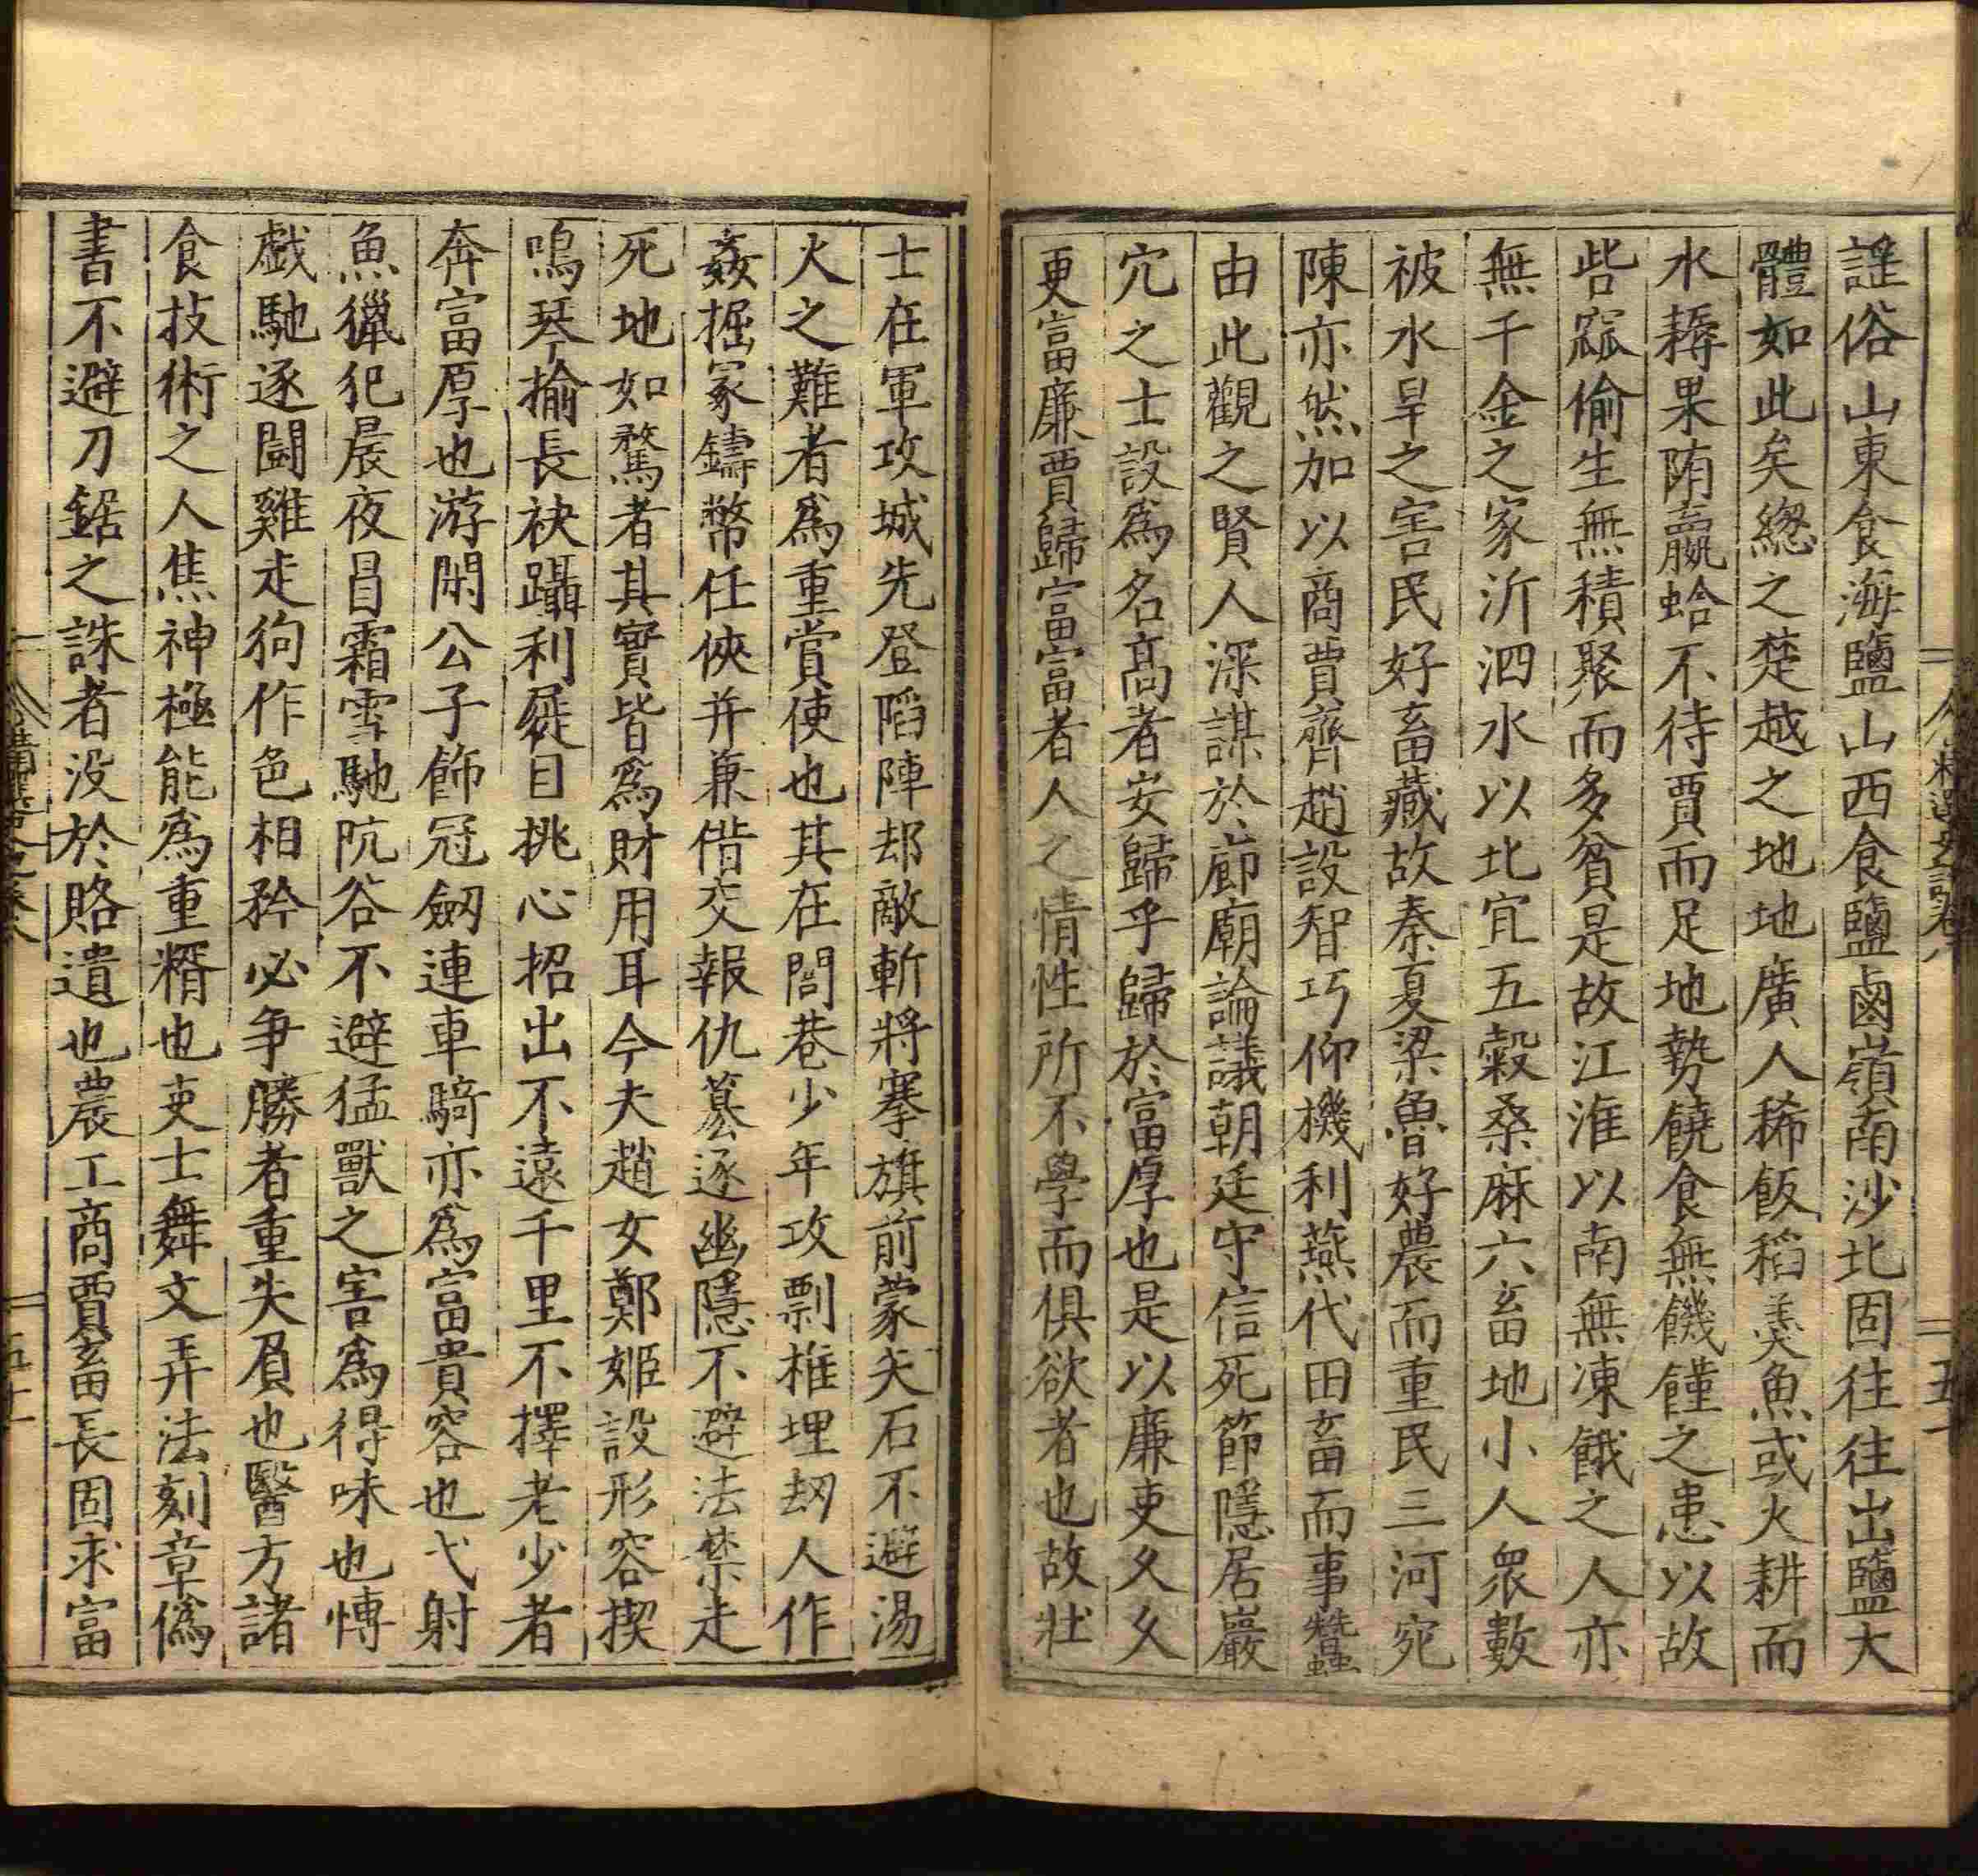 謡俗山東食海鹽山西食鹽鹵嶺南沙北固往往出鹽大
體如此矣緫之楚越之地地廣人稀飯稻羮魚或火耕而
水耨果陏蠃蛤不待賈而足地勢饒食無饑饉之患以故
呰窳偷生無積聚而多貧是故江淮以南無凍餓之人亦
無千金之家沂泗水以北宜五穀桑麻六畜地小人衆數
被水旱之害民好畜藏故秦夏梁魯好農而重民三河宛
陳亦然加以商賈齊趙設智巧仰機利燕代田畜而事蠶
由此觀之賢人深謀於廊廟論議朝廷守信死節隱居巖
穴之士設爲名髙者安歸乎歸於富厚也是以廉吏久久
更富廉賈歸富富者人之情性所不學而俱欲者也故壯
士在軍攻城先登䧟陣却敵斬將搴旗前蒙矢石不避湯
火之難者爲重賞使也其在閭巷少年攻剽椎埋刼人作
姦掘冢鑄幣任俠并兼借交報仇篡逐幽隱不避法禁走
死地如騖者其實皆爲財用耳今夫趙女鄭姬設形容揳
鳴琴揄長袂躡利屣目挑心招出不遠千里不擇老少者
奔富厚也游閑公子飾冠劒連車騎亦爲富貴容也弋射
魚獵犯晨夜冒霜雪馳阬谷不避猛獸之害爲得味也愽
戯馳逐鬬雞走狗作色相矜必争勝者重失負也醫方諸
食技術之人焦神極能爲重糈也吏士舞文弄法刻章偽
書不避刀鋸之誅者没於賂遺也農工商賈畜長固求富